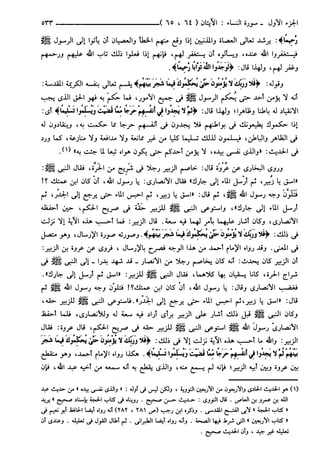 الجزء الأول - سورة النساء : الآيتان ( ٦٤ ، ٦٥ ) ٥٣٣
رَّحِيمًا﴾ : يرشد تعالى العصاة والمذنبين إذا وقع منهم الخطأ والعصيان أن يأتوا إلى الرسول ﷺ
فيستغفروا الله عنده، ويسألوه أن يستغفر لهم، فإنهم إذا فعلوا ذلك تاب الله عليهم ورحمهم
وغفر لهم، ولهذا قال: ﴿لَوَجَدُوا اللَّهَ تَوَّابًا رَّحِيمًا﴾.
وقوله: ﴿فَلَا وَرَبِّكَ لَا يُؤْمِنُونَ حَتَّىٰ يُحَكِّمُوكَ فِيمَا شَجَرَ بَيْنَهُمْ﴾ يقسم تعالى بنفسه الكريمة المقدسة:
أنه لا يؤمن أحد حتى يُحكم الرسول ﷺ في جميع الأمور، فما حكم به فهو الحق الذي يجب
الانقياد له باطنًا وظاهرًا؛ ولهذا قال: ﴿ثُمَّ لَا يَجِدُوا فِي أَنفُسِهِمْ حَرَجًا مِّمَّا قَضَيْتَ وَيُسَلِّمُوا تَسْلِيمًا﴾ أي:
إذا حكموك يطيعونك في بواطنهم فلا يجدون في أنفسهم حرجًا مما حكمت به، وينقادون له
في الظاهر والباطن، فيسلمون لذلك تسليمًا كليًا من غير ممانعة ولا مدافعة ولا منازعة، كما ورد
في الحديث: «والذي نفسي بيده، لا يؤمن أحدكم حتى يكون هواه تبعًا لما جئت به» (١).
وروى البخاري عن عُرْوَة قال: خاصم الزبير رجلًا في شَرِيج من الحَرَّة، فقال النبي:
«اسق يا زُبير، ثم أرْسل الماء إلى جارك» فقال الأنصاري: يا رسول الله، أنْ كان ابن عمتك ؟!
فَتَلَوَّن وجه رسول الله ﷺ، ثم قال: «اسق يا زبير، ثم احبس الماء حتى يرجع إلى الجدْر، ثم
أرسل الماء إلى جارك»، واستوعى النبي ﷺ للزبير حقّه في صريح الحكم، حين أحفظه
الأنصاري، وكان أشار عليهما بأمر لهما فيه سعة. قال الزبير: فما أحسب هذه الآية إلا نزلت
في ذلك: ﴿فَلَا وَرَبِّكَ لَا يُؤْمِنُونَ حَتَّىٰ يُحَكِّمُوكَ فِيمَا شَجَرَ بَيْنَهُمْ﴾. وصورته صورة الإرسال، وهو متصل
في المعنى. وقد رواه الإمام أحمد من هذا الوجه فصرح بالإرسال ، فروى عن عروة بن الزبير:
أن الزبير كان يحدث: أنه كان يخاصم رجلًا من الأنصار - قد شهد بدرا - إلى النبي ﷺ في
شراج الحرة، كانا يسقيان بها كلاهما، فقال النبي للزبير: «اسق ثم أرسل إلى جارك»،
فغضب الأنصاري وقال: يا رسول الله، أن كان ابن عمتك؟! فتلوّن وجه رسول الله ﷺ ثم
قال: «اسق يا زبير، ثم احبس الماء حتى يرجع إلى الجَدْر». فاستوعى النبي للزبير حقه،
وكان النبي ﷺ قبل ذلك أشار على الزبير برأي أراد فيه سعة له وللأنصاري، فلما أحفظ
الأنصاريُّ رسول الله ﷺ استوعى النبي ﷺ للزبير حقه في صريح الحكم، قال عروة: فقال
الزبير: والله ما أحسب هذه الآية نزلت إلا في ذلك: ﴿فَلَا وَرَبِّكَ لَا يُؤْمِنُونَ حَتَّىٰ يُحَكِّمُوكَ فِيمَا شَجَرَ
بَيْنَهُمْ ثُمَّ لَا يَجِدُوا فِي أَنفُسِهِمْ حَرَجًا مِّمَّا قَضَيْتَ وَيُسَلِّمُوا تَسْلِيمًا﴾. هكذا رواه الإمام أحمد، وهو منقطع
بين عروة وبين أبيه الزبير؛ فإنه لم يسمع منه، والذي يقطع به أنه سمعه من أخيه عبد الله، فإن
(١) هو الحديث الحادي والأربعون من الأربعين النووية ، ولكن ليس في أوله : «والذي نفسي بيده» من حديث عبد
الله بن عمرو بن العاص . قال النووي : حديث حسن صحيح . رويناه في كتاب الحجة بإسناد صحيح